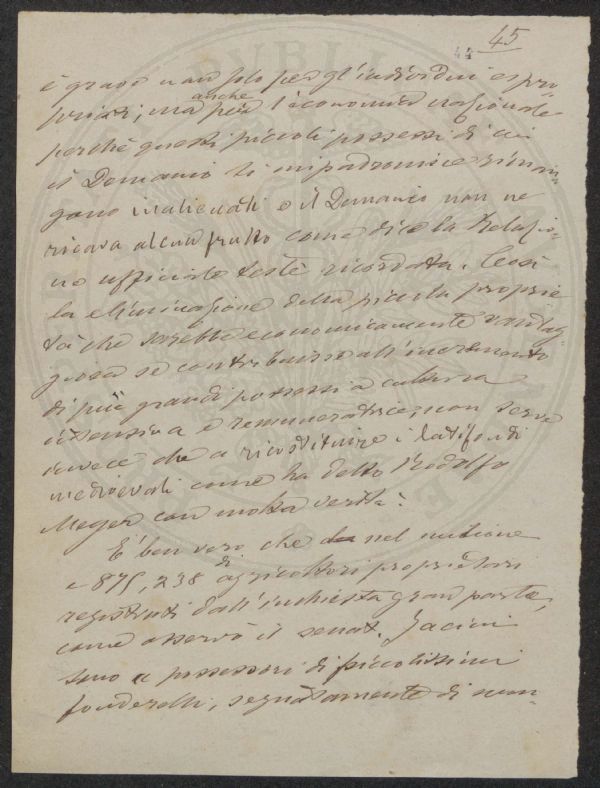 45
44
è grave non solo per gl'individui espro-
priati, ma anche per l'economia nazionale
perchè questi piccoli possessi di cui
il Demanio si impadronisce riman-
gono inalienati e il Demanio non ne
ricava alcun frutto come dice la Relazio-
ne ufficiale testè ricordata. Così
la eliminazione della piccola proprie-
tà che sarebbe economicamente vantag-
giosa se contribuisse all'incremento
di più grandi possessi a cultura
intensiva e remuneratrice, non serve
invece che a ricostituire i latifondi
medioevali come ha detto Rodolfo
Meyer con molta verità.
È ben vero che nel milione
e 875,238 di agricoltori proprietari
registrati dall'inchiesta gran parte,
come osservò il senat. Jacini
sono possessori di piccolissimi
fonderelli, segnatamente di mon-